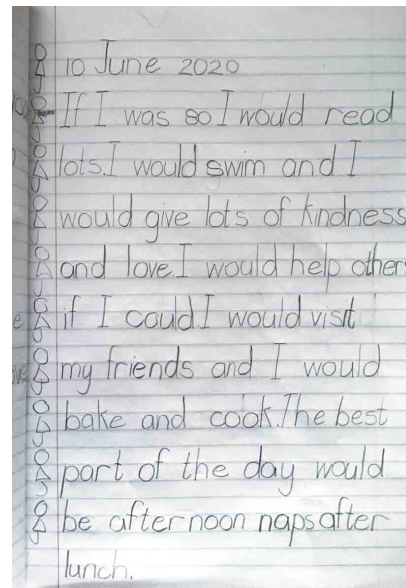 10 June 2020
If I was 80 I would read
lots. I would swim and I
would give lots of kindness
and love. I would help other
if I could. I would visit
my friends and I would
bake and cook. The best
part of the day would
be afternoon naps after
lunch.